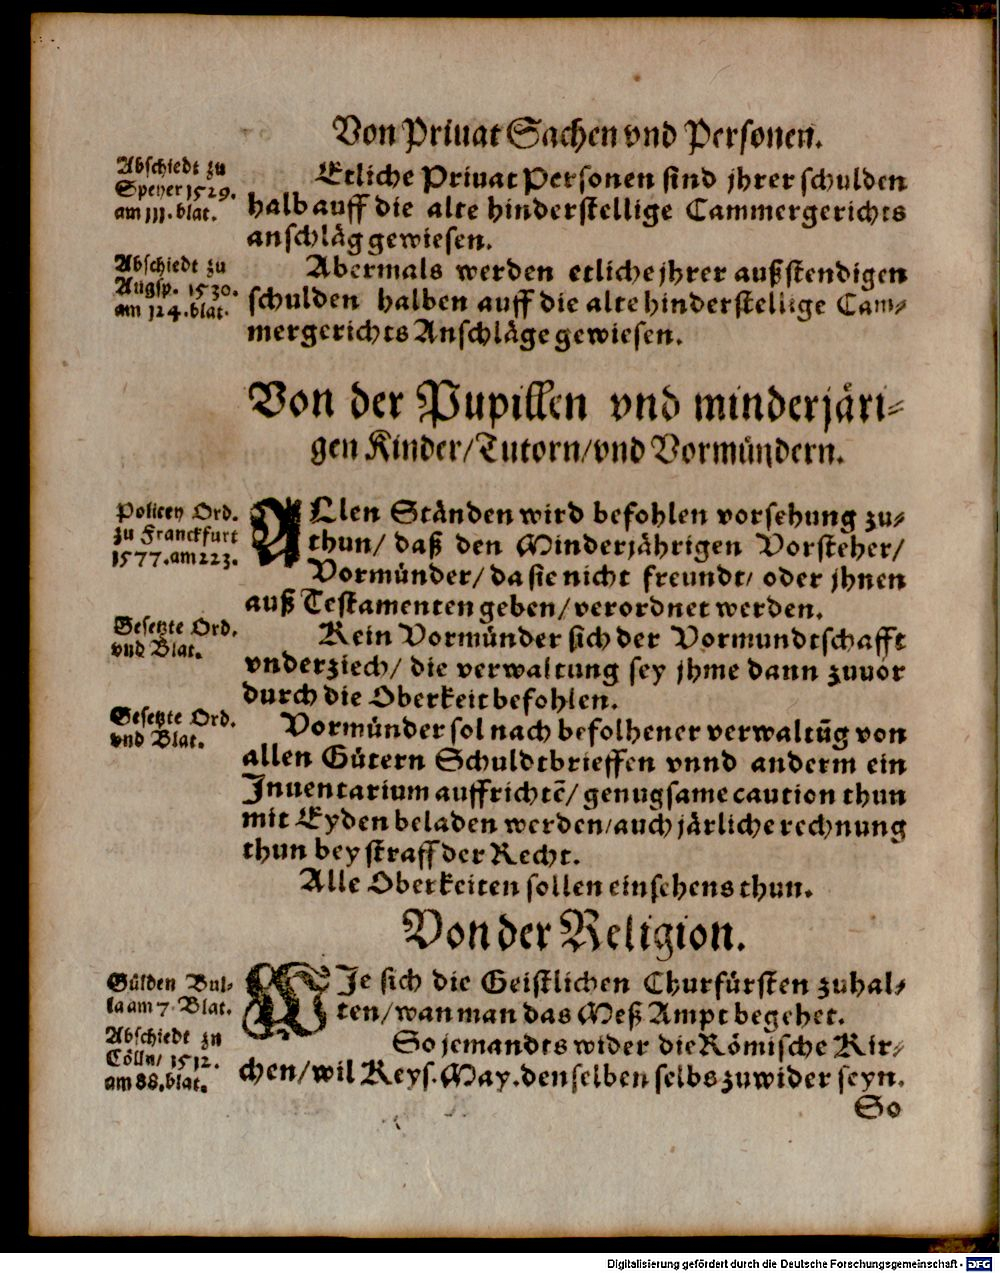 Von Priuat Sachen vnd Personen.
Abschiedt zu
Speyer 1529.
am 111. blat.
Etliche Priuat Personen sind jhrer schulden
halb auff die alte hinderstellige Cammergerichts
anschläg gewiesen.
Abschiedt zu
Augsp. 1530.
am 124. blat.
Abermals werden etliche jhrer außstendigen
schulden halben auff die alte hinderstellige Cam-
mergerichts Anschläge gewiesen.
Von der Pupillen vnd minderjäri-
gen Kinder/Tutorn/vnd Vormündern.
Policey Ord.
zu Franckfurt
1577. am 223.
ALlen Ständen wird befohlen vorsehung zu-
thun/ daß den Minderjährigen Vorsteher/
Vormünder/ da sie nicht freundt/ oder jhnen
auß Testamenten geben/ verordnet werden.
Gesetzte Ord.
vnd Blat.
Kein Vormünder sich der Vormundtschafft
vnderziech/ die verwaltung sey jhme dann zuuor
durch die Oberkeit befohlen.
Gesetzte Ord.
vnd Blat.
Vormünder sol nach befolhener verwaltūg von
allen Gütern Schuldtbrieffen vnnd anderm ein
Inuentarium auffrichtē/ genugsame caution thun
mit Eyden beladen werden/ auch järliche rechnung
thun bey straff der Recht.
Alle Oberkeiten sollen einsehens thun.
Von der Religion.
Gülden Bul-
la am 7. Blat.
WIe sich die Geistlichen Churfürsten zuhal-
ten/ wan man das Meß Ampt begehet.
Abschiedt zu
Cölln/ 1512.
am 88. blat.
So jemandts wider die Römische Kir-
chen/ wil Keys. May. denselben selbs zuwider seyn.
So
Digitalisierung gefördert durch die Deutsche Forschungsgemeinschaft - DFG